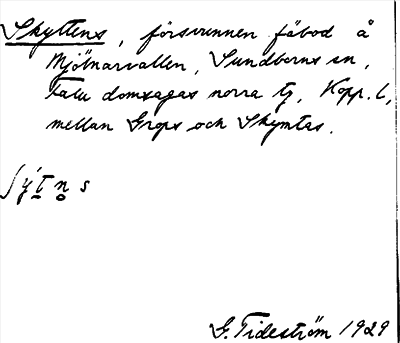 Skyttens, försvunnen fäbod å
Mjölnarvallen, Sundborns sn,
Falu domsagas norra tg, Kopp. l,
mellan Grops och Skymtas.
ʃýt̲n̥ s
G. Tideström 1929